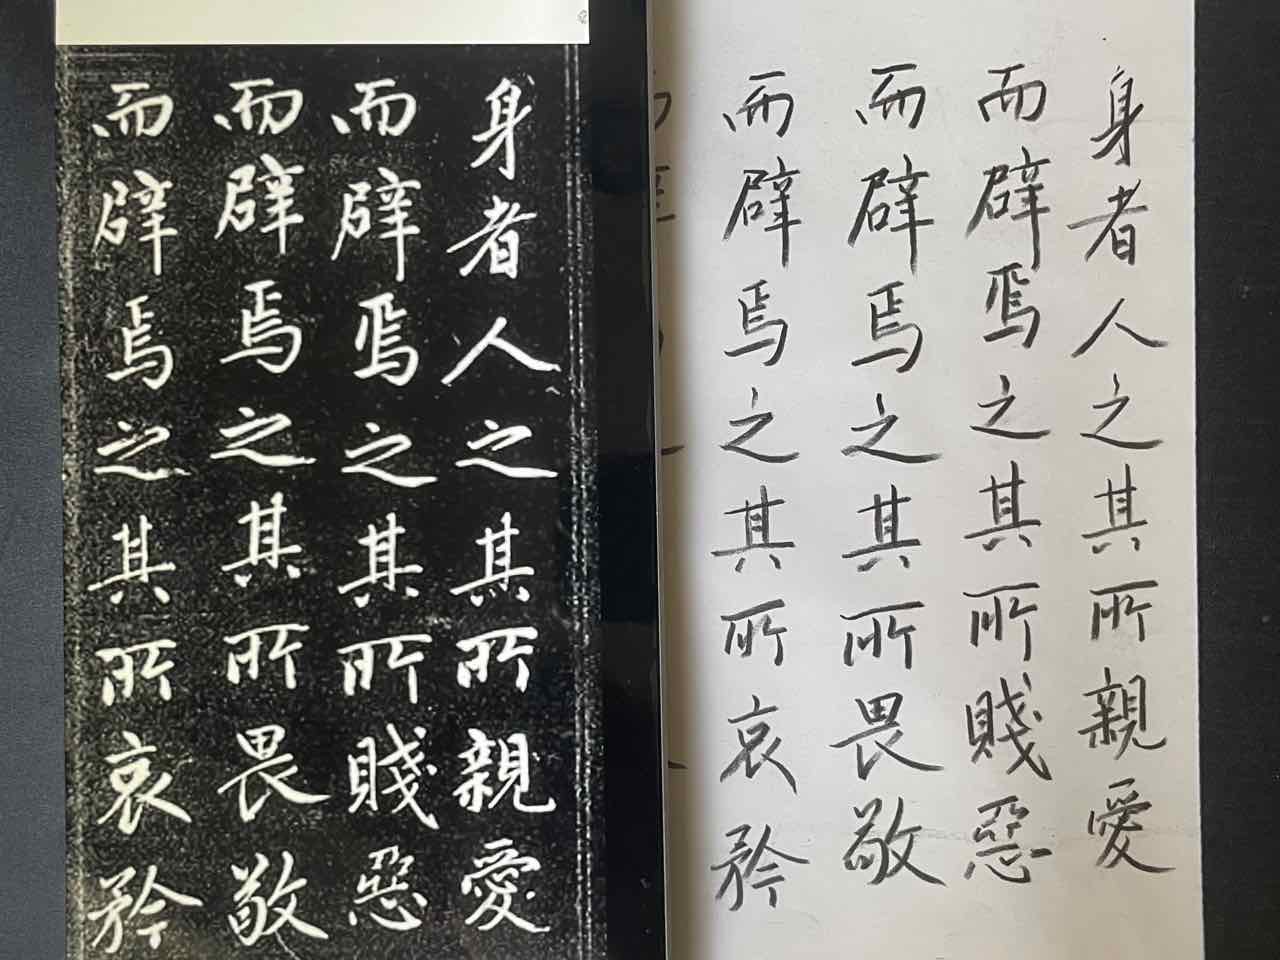 身者人之其所親愛
而辟焉之其所賤惡
而辟焉之其所畏敬
而辟焉之其所哀矜
身者人之其所親愛
而辟焉之其所賤惡
而辟焉之其所畏敬
而辟焉之其所哀矜